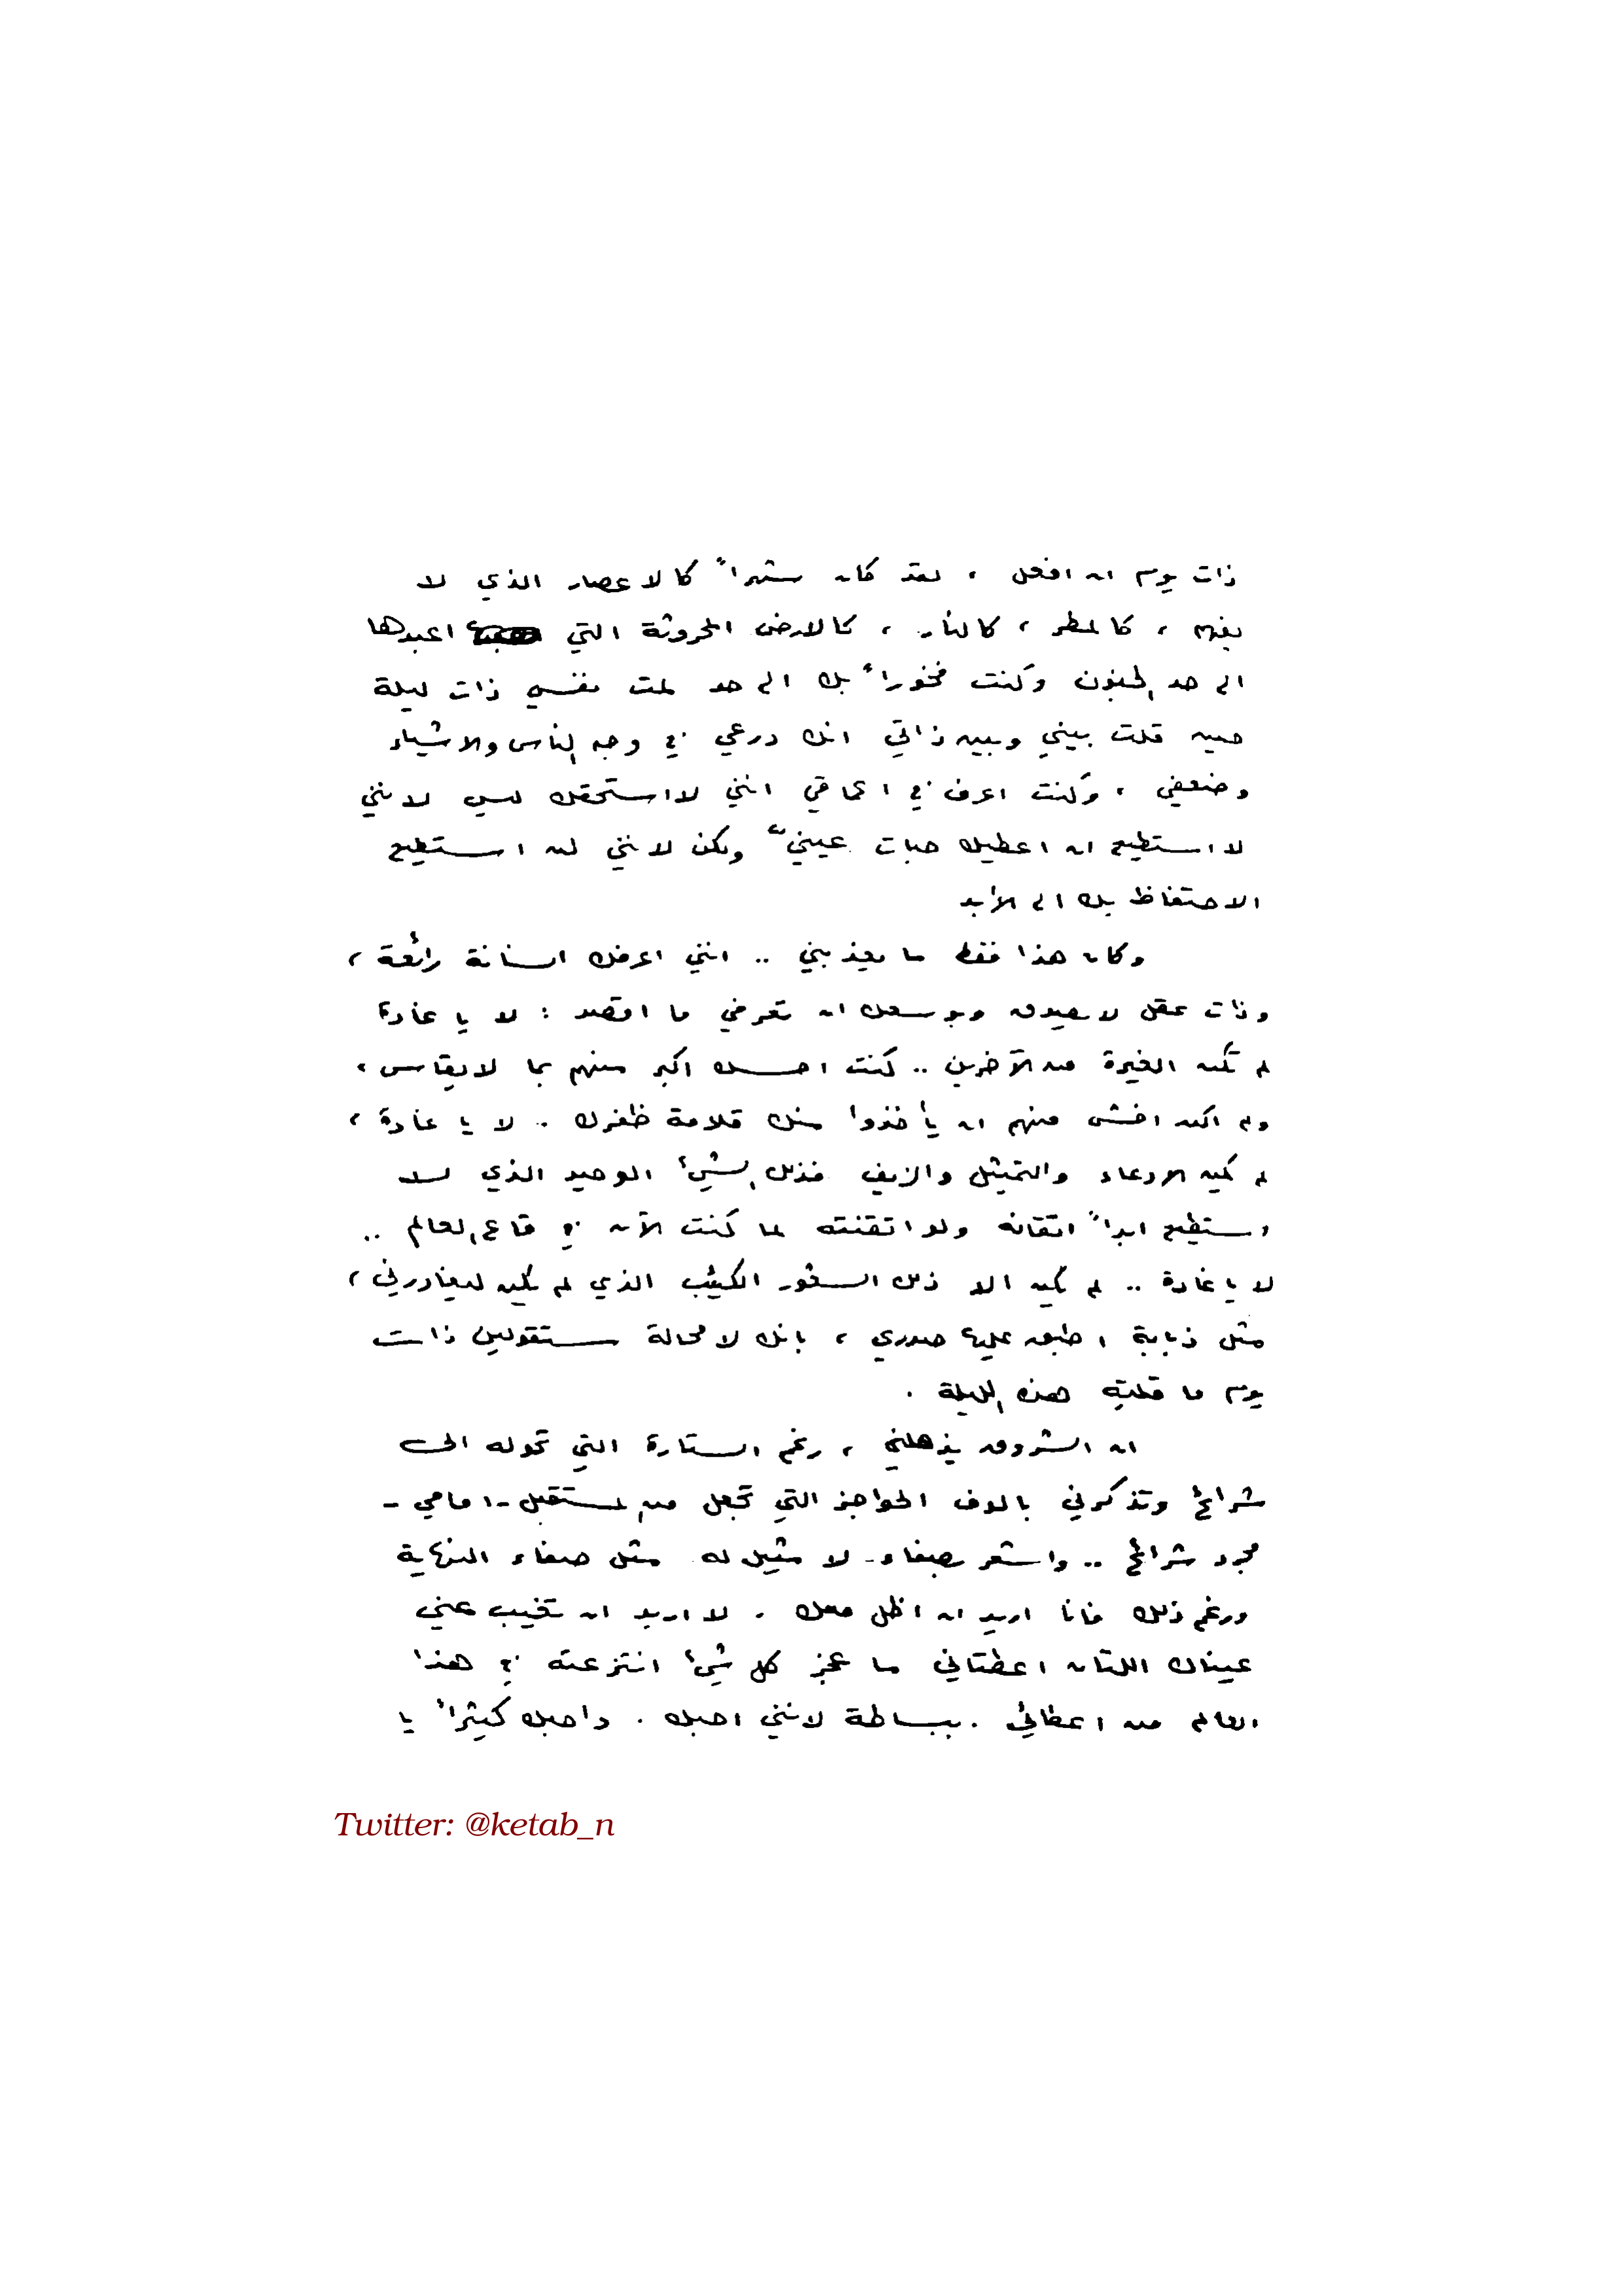 ذات يوم ان افعل ، لقد كان شهراً كالاعصار الذي لا
يفهم ، كالمطر ، كالنار ، كالارض المحروثة التي اعبدها
الى حد الجنون وكنت فخوراً بك الى حد لمت نفسي ذات ليلة
حين قلت بيني وبين ذاتي انك درعي في وجه الناس والاشياء
وضعفي ، وكنت اعرف في اعماقي انني لا استحقك ليس لانني
لا استطيع ان اعطيك حبات عينيّ ولكن لانني لن استطيع
الاحتفاظ بك الى الأبد
وكان هذا فقط ما يعذبني .. انني اعرفك انسانة رائعة ،
وذات عقل لا يصدق وبوسعك ان تعرفي ما اقصد : لا يا غادة
لم تكن الغيرة من الآخرين .. كنت احسك اكبر منهم بما لا يقاس ،
ولم اكن اخشى منهم ان يأخذوا منك قلامة ظفرك .. لا يا غادة ،
لم يكن الادعاء والتمثيل والزيف فذلك الشيء الوحيد الذي لن
استطيع ابداً اتقانه ولو اتقنته لما كنت الآن في قاع العالم ..
لا يا غادة .. لم يكن الا ذلك الشعور الكئيب الذي لم يكن ليغادرني ،
مثل ذبابة اطبق عليها صدري ، بانك لا محالة ستقولين ذات
يوم ما قلتِه هذه الليلة .
ان الشروق يذهلني ، رغم الستارة التي تحوله الى
شرائح وتذكرني بالوف الحواجز التي تجعل من المستقبل - امامي -
مجرد شرائح .. واشعر بصفاء لا مثيل له مثل صفاء النهاية
ورغم ذلك فانا اريد ان اظل معك . لا اريد ان تغيب عني
عيناك اللتان اعطتاني ما عجز كل شيء انتزعته في هذا
العالم من اعطائي . ببساطة لانني احبك . واحبك كثيراً يا
Twitter: @ketab_n